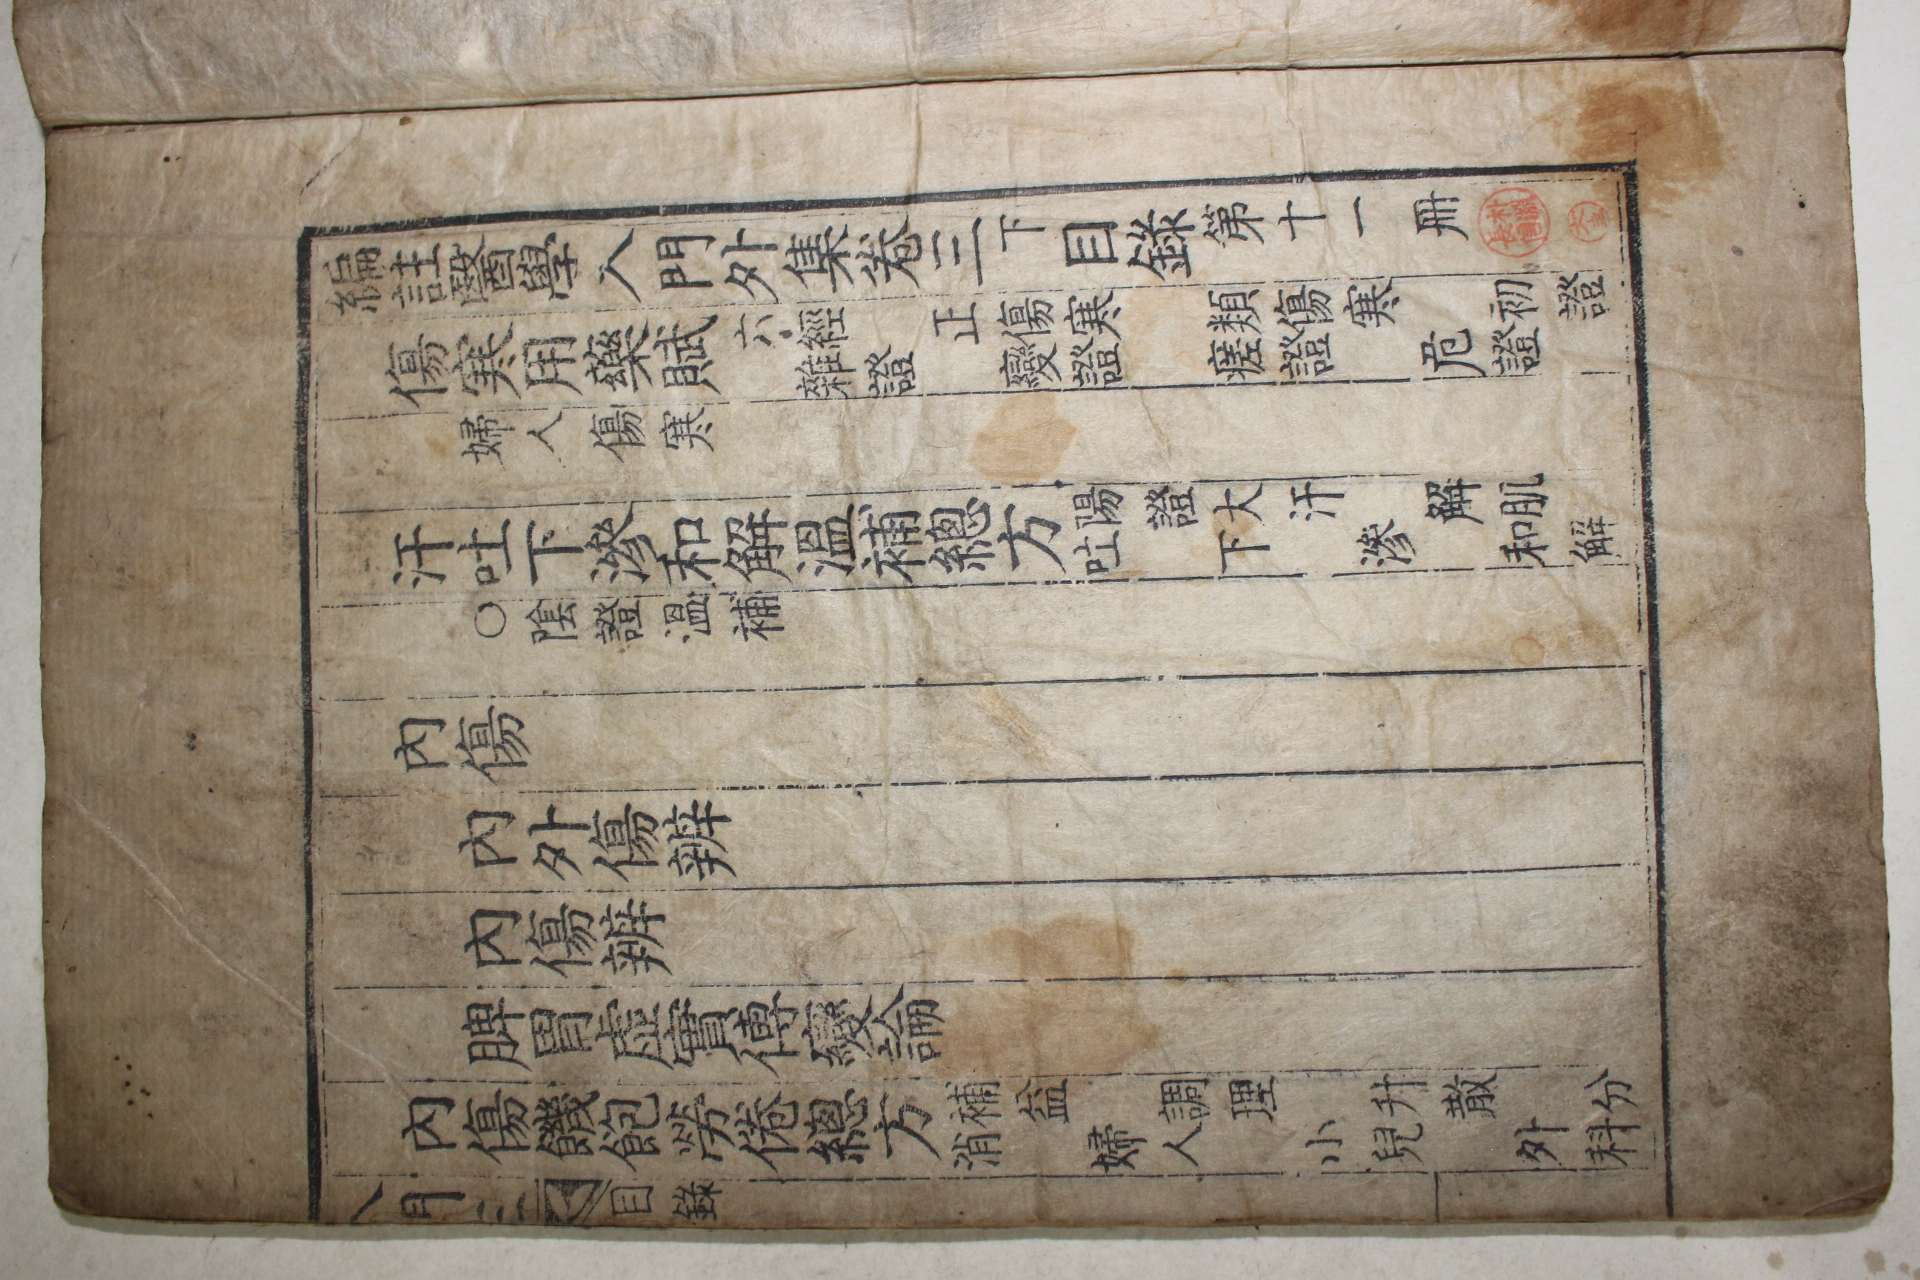 編註醫學入門外集卷三下目錄第十一冊
傷寒用藥賦
六經 正傷寒 類傷寒 初證
雜證 變證 瘥證 危證
婦人傷寒
汗吐下滲和解溫補總方
陽證 大汗 解肌
吐 下 滲 和解
○陰證溫補
內傷
內外傷辨
內傷辨
脾胃虛實傳變論
內傷饑飽勞倦總方
補益 調理 升散 分
消 婦人 小兒 外科
入門三 目錄